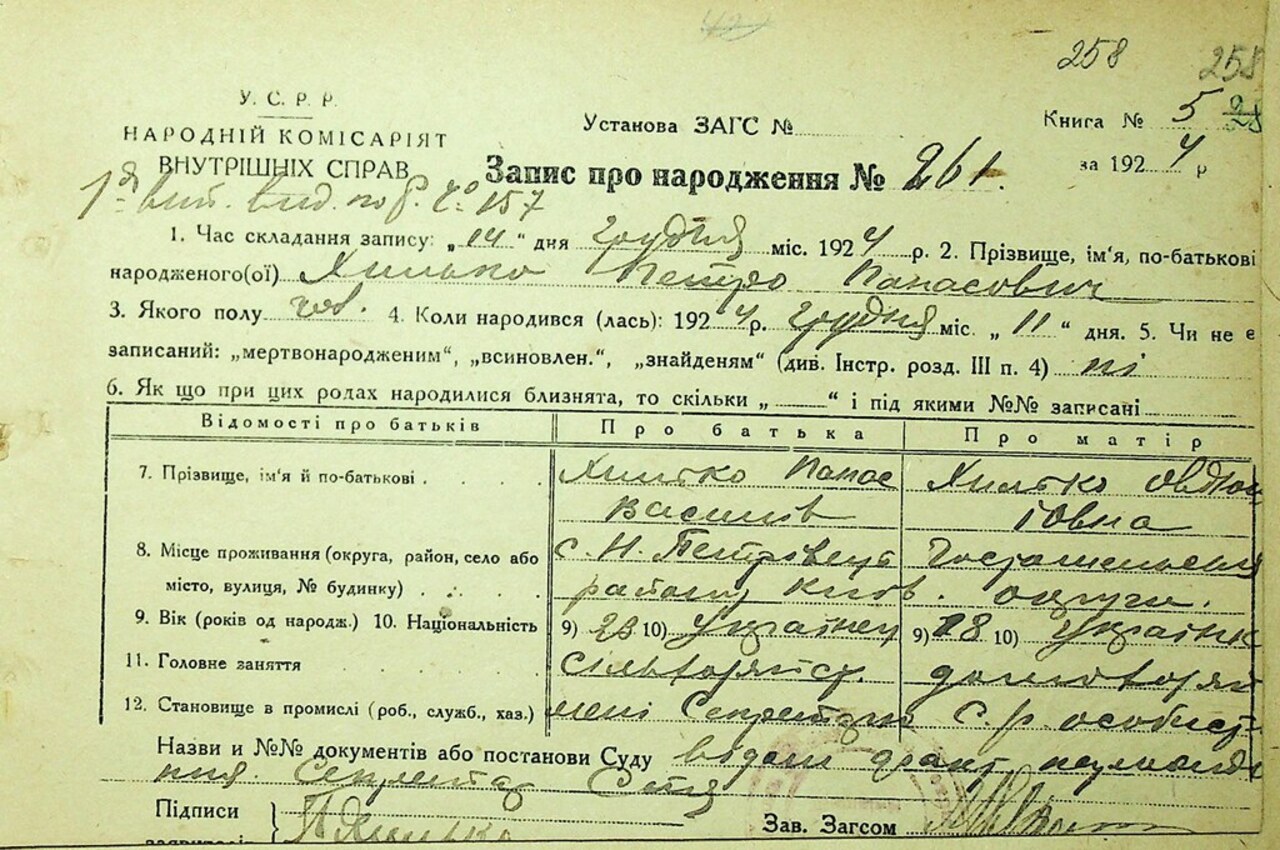 258 258
У. С. Р. Р.
НАРОДНІЙ КОМІСАРІЯТ
ВНУТРІШНІХ СПРАВ
Установа ЗАГС №
Книга № 5
за 1924 р
Запис про народження № 261.
157
1. Час складання запису: „14“ дня грудня міс. 1924 р. 2. Прізвище, ім'я, по-батькові
народженого(ої) Хилько Петро Панасович
3. Якого полу чов. 4. Коли народився (лась): 1924 р. грудня міс. „11“ дня. 5. Чи не є
записаний: „мертвонародженим“, „всиновлен.“, „знайденям“ (див. Інстр. розд. III п. 4) ні
6. Як що при цих родах народилися близнята, то скільки „ “ і під якими №№ записані
Відомості про батьків Про батька Про матір
7. Прізвище, ім'я й по-батькові Хилько Панас Хилько
Васильов
8. Місце проживання (округа, район, село або с. Н. Петрівці
місто, вулиця, № будинку) району Київ. округи.
9. Вік (років од народж.) 10. Національність 9) 23 10) Українец 9) 18 10) Українк
11. Головне заняття
12. Становище в промислі (роб., служб., хаз.) С. р. особист
Назви и №№ документів або постанови Суду
Секретар
Підписи Хилько
Зав. Загсом
заявителів